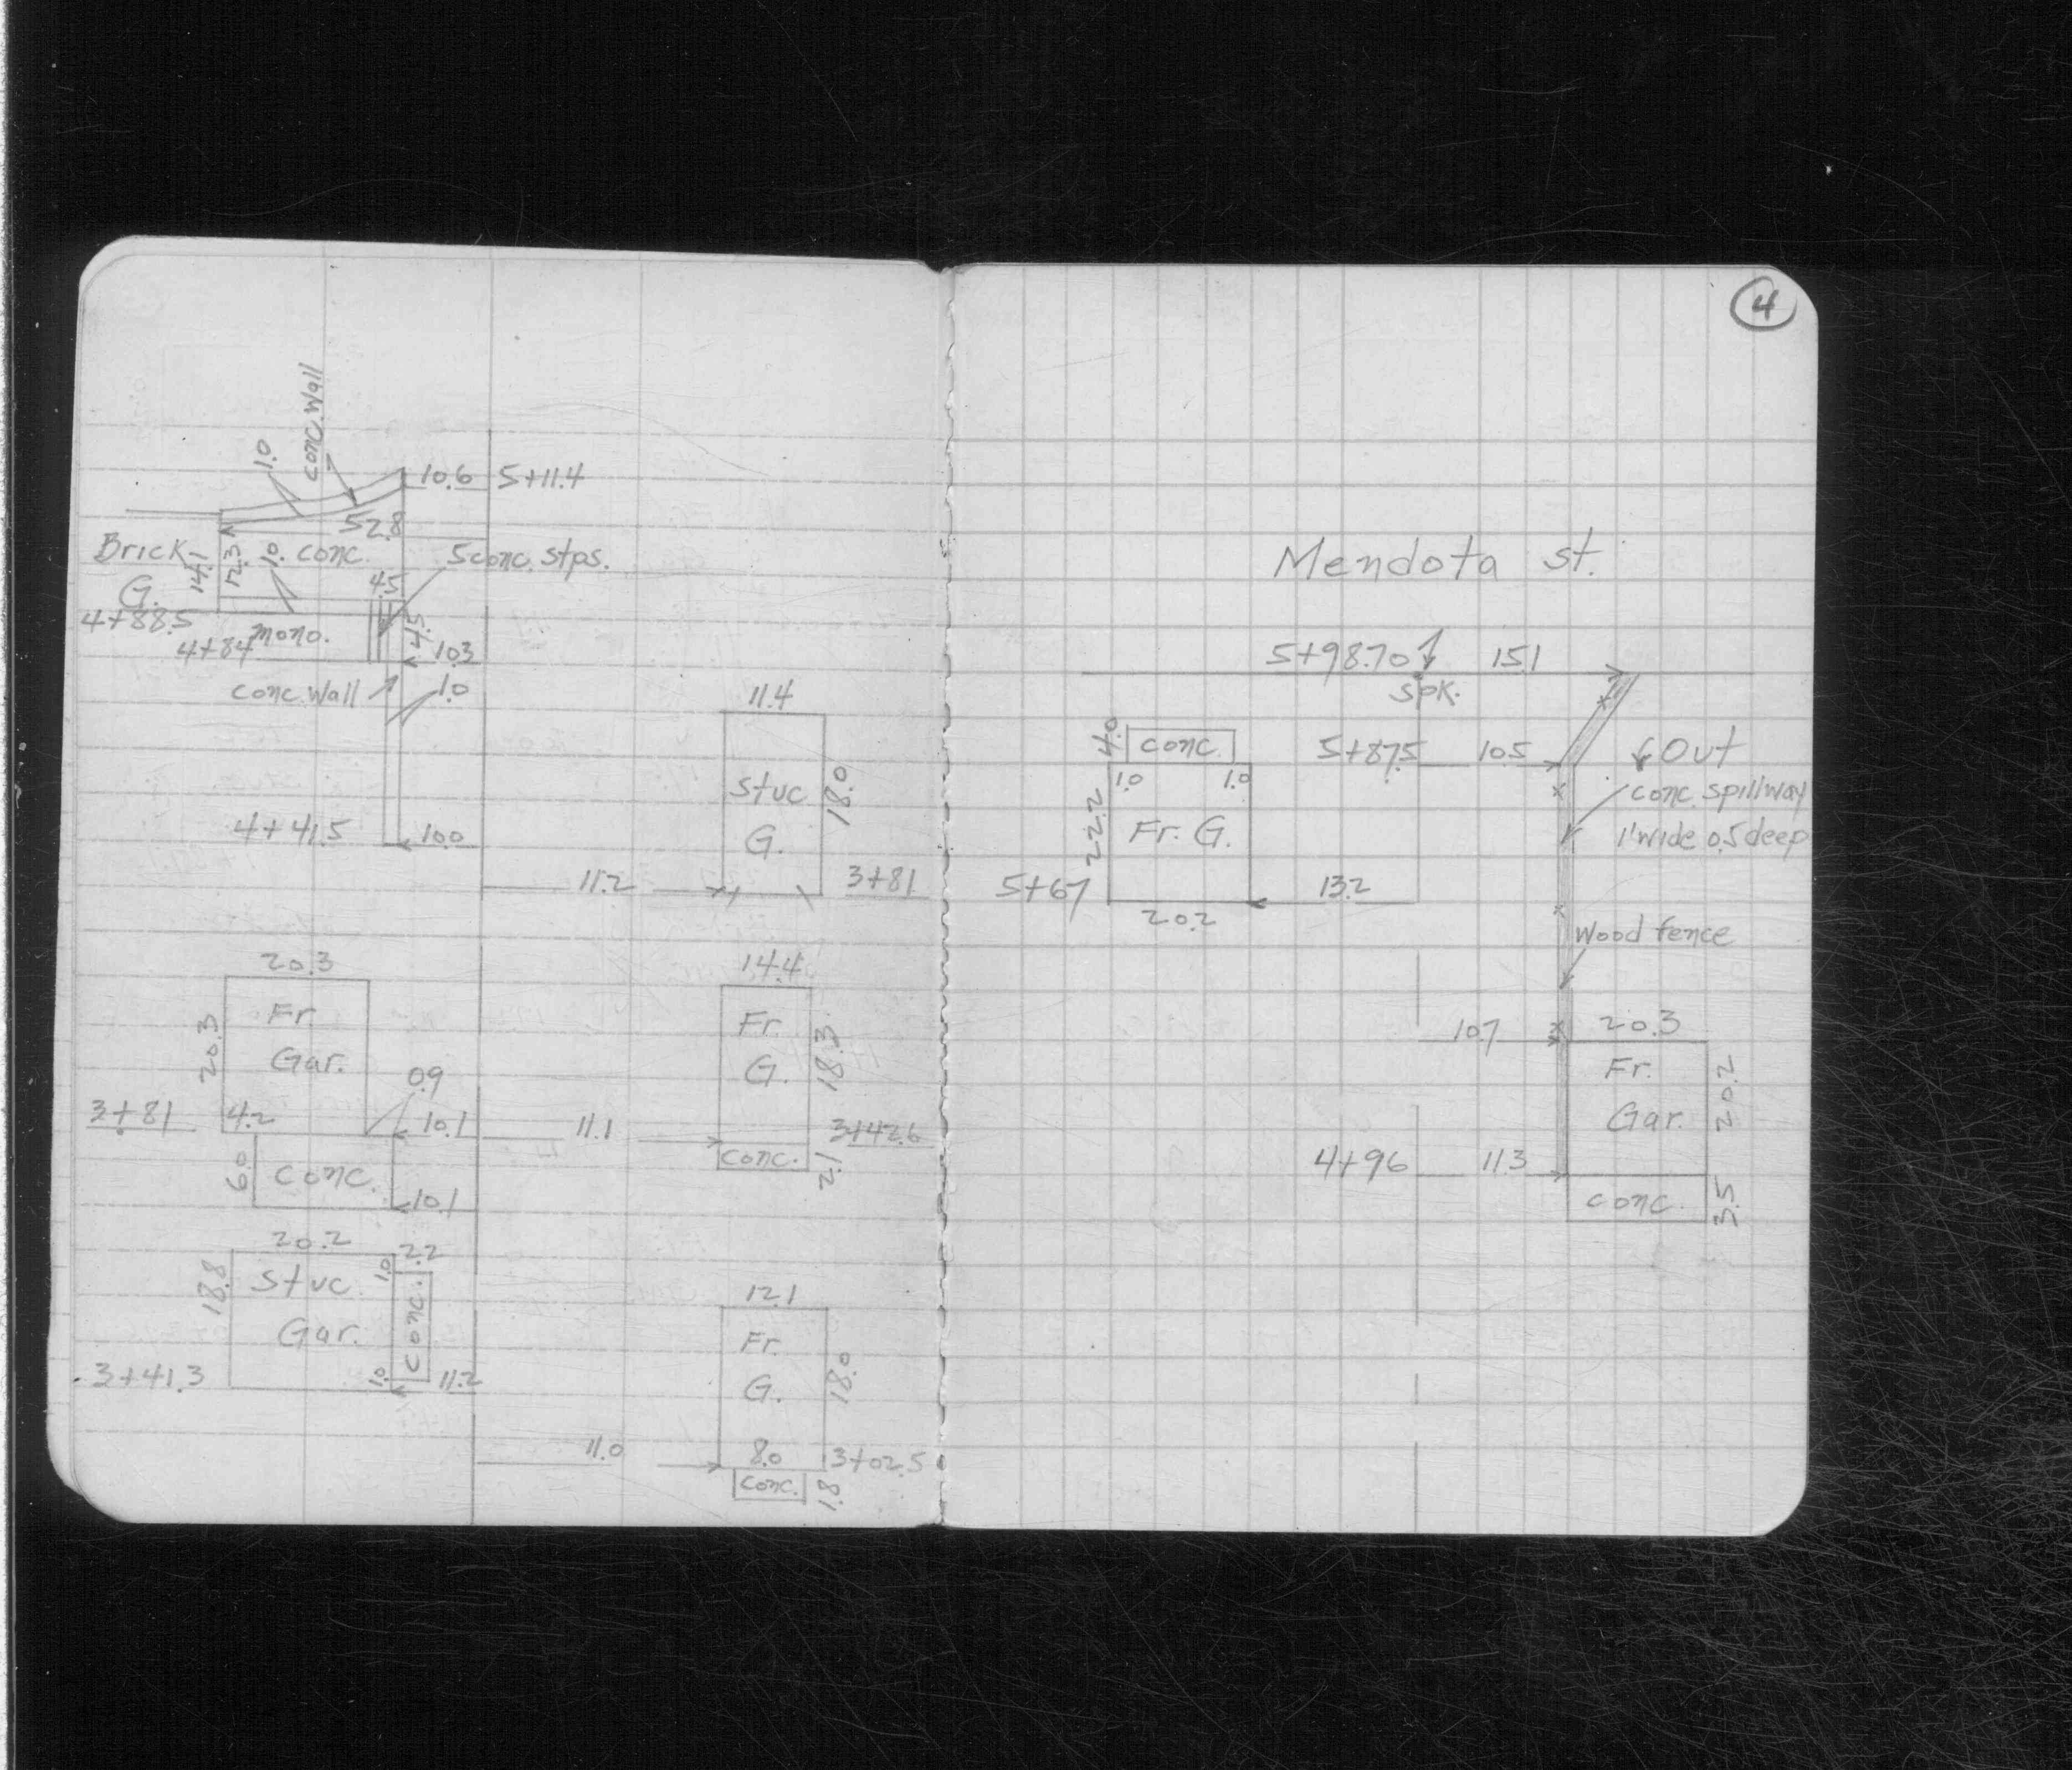 conc. Wall
1.0
10.6 5+11.4
52.8
Brick
G.
14.1
12.3
1.0
conc.
5 conc. stps.
4.5
4+88.5
4+84
mono.
4.5
10.3
conc. Wall
1.0
4+41.5
10.0
11.4
Stuc
G.
18.0
11.2
3+81
20.3
Fr.
Gar.
20.3
0.9
3+81
4.2
10.1
6.0
conc.
10.1
14.4
Fr.
G.
18.3
11.1
3+42.6
conc.
2.1
20.2
2.2
Stuc
Gar.
18.8
1.0
conc.
1.0
3+41.3
11.2
12.1
Fr.
G.
18.0
11.0
8.0
3+02.5
conc.
1.8
4
Mendota st.
5+98.70
15.1
spk.
4.0
conc.
5+87.5
10.5
Out
1.0
1.0
conc. spillway
1' wide 0.5 deep
22.2
Fr. G.
5+67
13.2
20.2
Wood fence
10.7
20.3
Fr.
Gar.
20.2
4+96
11.3
conc.
3.5